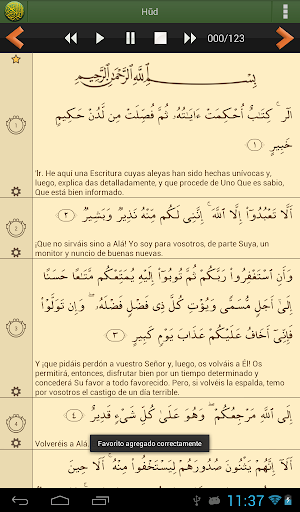 Hūd
000/123
بِسْمِ ٱللَّهِ ٱلرَّحْمَٰنِ ٱلرَّحِيمِ
الٓر ۚ كِتَٰبٌ أُحْكِمَتْ ءَايَٰتُهُۥ ثُمَّ فُصِّلَتْ مِن لَّدُنْ حَكِيمٍ
خَبِيرٍ ١
1
'lr. He aquí una Escritura cuyas aleyas han sido hechas unívocas y,
luego, explica das detalladamente, y que procede de Uno Que es sabio,
Que está bien informado.
أَلَّا تَعْبُدُوٓا۟ إِلَّا ٱللَّهَ ۚ إِنَّنِى لَكُم مِّنْهُ نَذِيرٌ وَبَشِيرٌ ٢
2
¡Que no sirváis sino a Alá! Yo soy para vosotros, de parte Suya, un
monitor y nuncio de buenas nuevas.
وَأَنِ ٱسْتَغْفِرُوا۟ رَبَّكُمْ ثُمَّ تُوبُوٓا۟ إِلَيْهِ يُمَتِّعْكُم مَّتَٰعًا حَسَنًا
إِلَىٰٓ أَجَلٍ مُّسَمًّى وَيُؤْتِ كُلَّ ذِى فَضْلٍ فَضْلَهُۥ ۖ وَإِن تَوَلَّوْا۟
فَإِنِّىٓ أَخَافُ عَلَيْكُمْ عَذَابَ يَوْمٍ كَبِيرٍ ٣
3
¡Y ¡que pidáis perdón a vuestro Señor y, luego, os volváis a Él! Os
permitirá, entonces, disfrutar bien por un tiempo determinado y
concederá Su favor a todo favorecido. Pero, si volvéis la espalda, temo
por vosotros el castigo de un día terrible.
إِلَى ٱللَّهِ مَرْجِعُكُمْ ۖ وَهُوَ عَلَىٰ كُلِّ شَىْءٍ قَدِيرٌ ٤
4
Volveréis a Alá.
Favorito agregado correctamente
أَلَآ إِنَّهُمْ يَثْنُونَ صُدُورَهُمْ لِيَسْتَخْفُوا۟ مِنْهُ ۚ أَلَا حِينَ
11:37